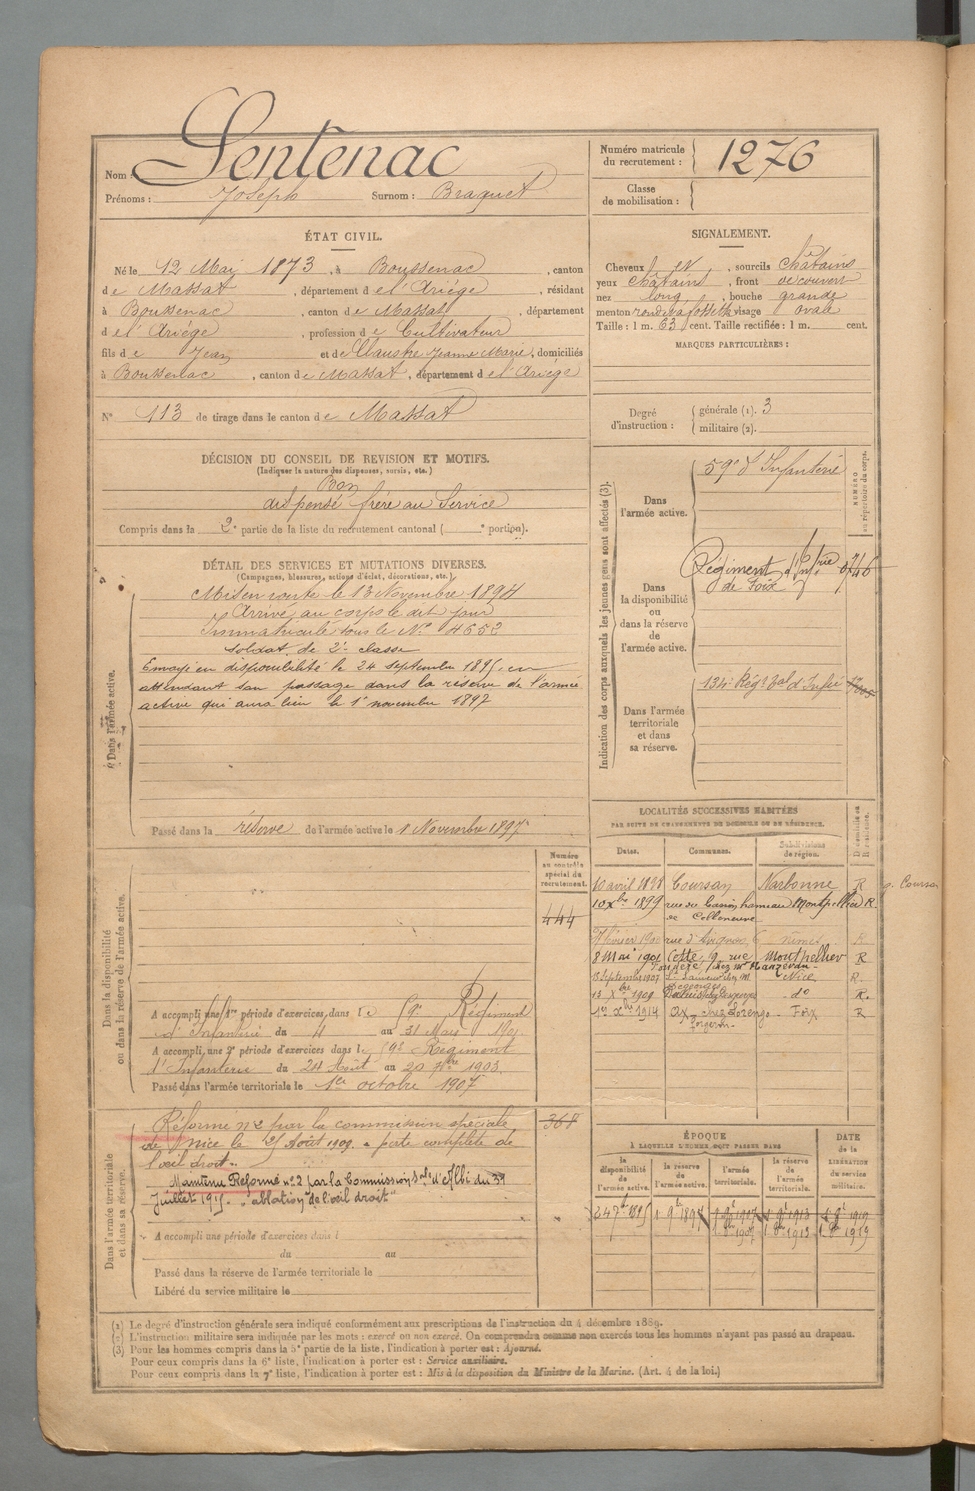 Nom : Sentenac
Prénoms : Joseph Surnom : Braquet
Numéro matricule du recrutement : 1276
Classe de mobilisation :
ÉTAT CIVIL.
Né le 12 Mai 1873, à Boussenac, canton
de Massat, département de l'Ariège, résidant
à Boussenac, canton de Massat, département
de l'Ariège, profession de Cultivateur
fils de Jean et de Claustre Jeanne Marie, domiciliés
à Boussenac, canton de Massat, département de l'Ariège
N° 113 de tirage dans le canton de Massat
SIGNALEMENT.
Cheveux , sourcils châtains
yeux châtains, front découvert
nez long, bouche grande
menton rond visage ovale
Taille : 1 m. 63 cent. Taille rectifiée : 1 m. cent.
MARQUES PARTICULIÈRES :
Degré d'instruction : générale (1). 3
militaire (2).
DÉCISION DU CONSEIL DE REVISION ET MOTIFS.
(Indiquer la nature des dispenses, sursis, etc.)
Bon
dispensé frère au Service
Compris dans la 2e partie de la liste du recrutement cantonal ( e portion).
DÉTAIL DES SERVICES ET MUTATIONS DIVERSES.
(Campagnes, blessures, actions d'éclat, décorations, etc.)
Dans l'armée active.
Mis en route le 13 Novembre 1894
Arrivé au corps le dit jour
Immatriculé sous le N° 4652
soldat de 2e classe
Envoyé en disponibilité le 24 septembre 1895, en
attendant son passage dans la réserve de l'armée
active qui aura lieu le 1er novembre 1897
Passé dans la réserve de l'armée active le 1 Novembre 1897
Indication des corps auxquels les jeunes gens sont affectés (3).
NUMÉRO au répertoire du corps.
Dans l'armée active.
59e d'Infanterie
Dans la disponibilité ou dans la réserve de l'armée active.
Régiment d'Infrie
de Foix
Dans l'armée territoriale et dans sa réserve.
134e Régt tal d'Infie
LOCALITÉS SUCCESSIVES HABITÉES
PAR SUITE DE CHANGEMENTS DE DOMICILE OU DE RÉSIDENCE.
Dates. Communes. Subdivisions de région.
10 avril 1898 Coursan Narbonne R
10 Xbre 1899 rue du Casino hameau Montpellier R.
de Colleneuve
février 190 rue d'Avignon 6 Nimes R
8 Mai 1901 Cette, 9 rue Montpellier R
chez Mr
13 Septembre 1907 chez M. Nice R.
13 Xbre 1909 do R.
1er Xbre 1914 Ax Foix R
Numéro au contrôle spécial du recrutement.
444
Dans la disponibilité ou dans la réserve de l'armée active.
A accompli une 1re période d'exercices, dans le 59e Régiment
d'Infanterie du 4 au 31 Mars 1901
A accompli une 2e période d'exercices dans le 59e Régiment
d'Infanterie du 24 Août au 20 7bre 1903.
Passé dans l'armée territoriale le 1er octobre 1907
Dans l'armée territoriale et dans sa réserve.
368
Réformé n°2 par la commission spéciale
de Nice le 21 Août 1909. perte complète de
l'œil droit.
Maintenu Réformé n°2 par la Commission Sple d'Albi du 31
Juillet 1915. "ablation de l'œil droit"
A accompli une période d'exercices dans l
du au
Passé dans la réserve de l'armée territoriale le
Libéré du service militaire le
ÉPOQUE
À LAQUELLE L'HOMME DOIT PASSER DANS
la disponibilité de l'armée active. la réserve de l'armée active. l'armée territoriale. la réserve de l'armée territoriale.
DATE de la LIBÉRATION du service militaire.
24 7bre 1895 1 9b 1897 1 9b 1907 1 9b 1913 1 9b 1919
1 8b 1907 1 8b 1913 1 8b 1919
(1) Le degré d'instruction générale sera indiqué conformément aux prescriptions de l'instruction du 4 décembre 1889.
(2) L'instruction militaire sera indiquée par les mots : exercé ou non exercé. On comprendra comme non exercés tous les hommes n'ayant pas passé au drapeau.
(3) Pour les hommes compris dans la 5e partie de la liste, l'indication à porter est : Ajourné.
Pour ceux compris dans la 6e liste, l'indication à porter est : Service auxiliaire.
Pour ceux compris dans la 7e liste, l'indication à porter est : Mis à la disposition du Ministre de la Marine. (Art. 4 de la loi.)